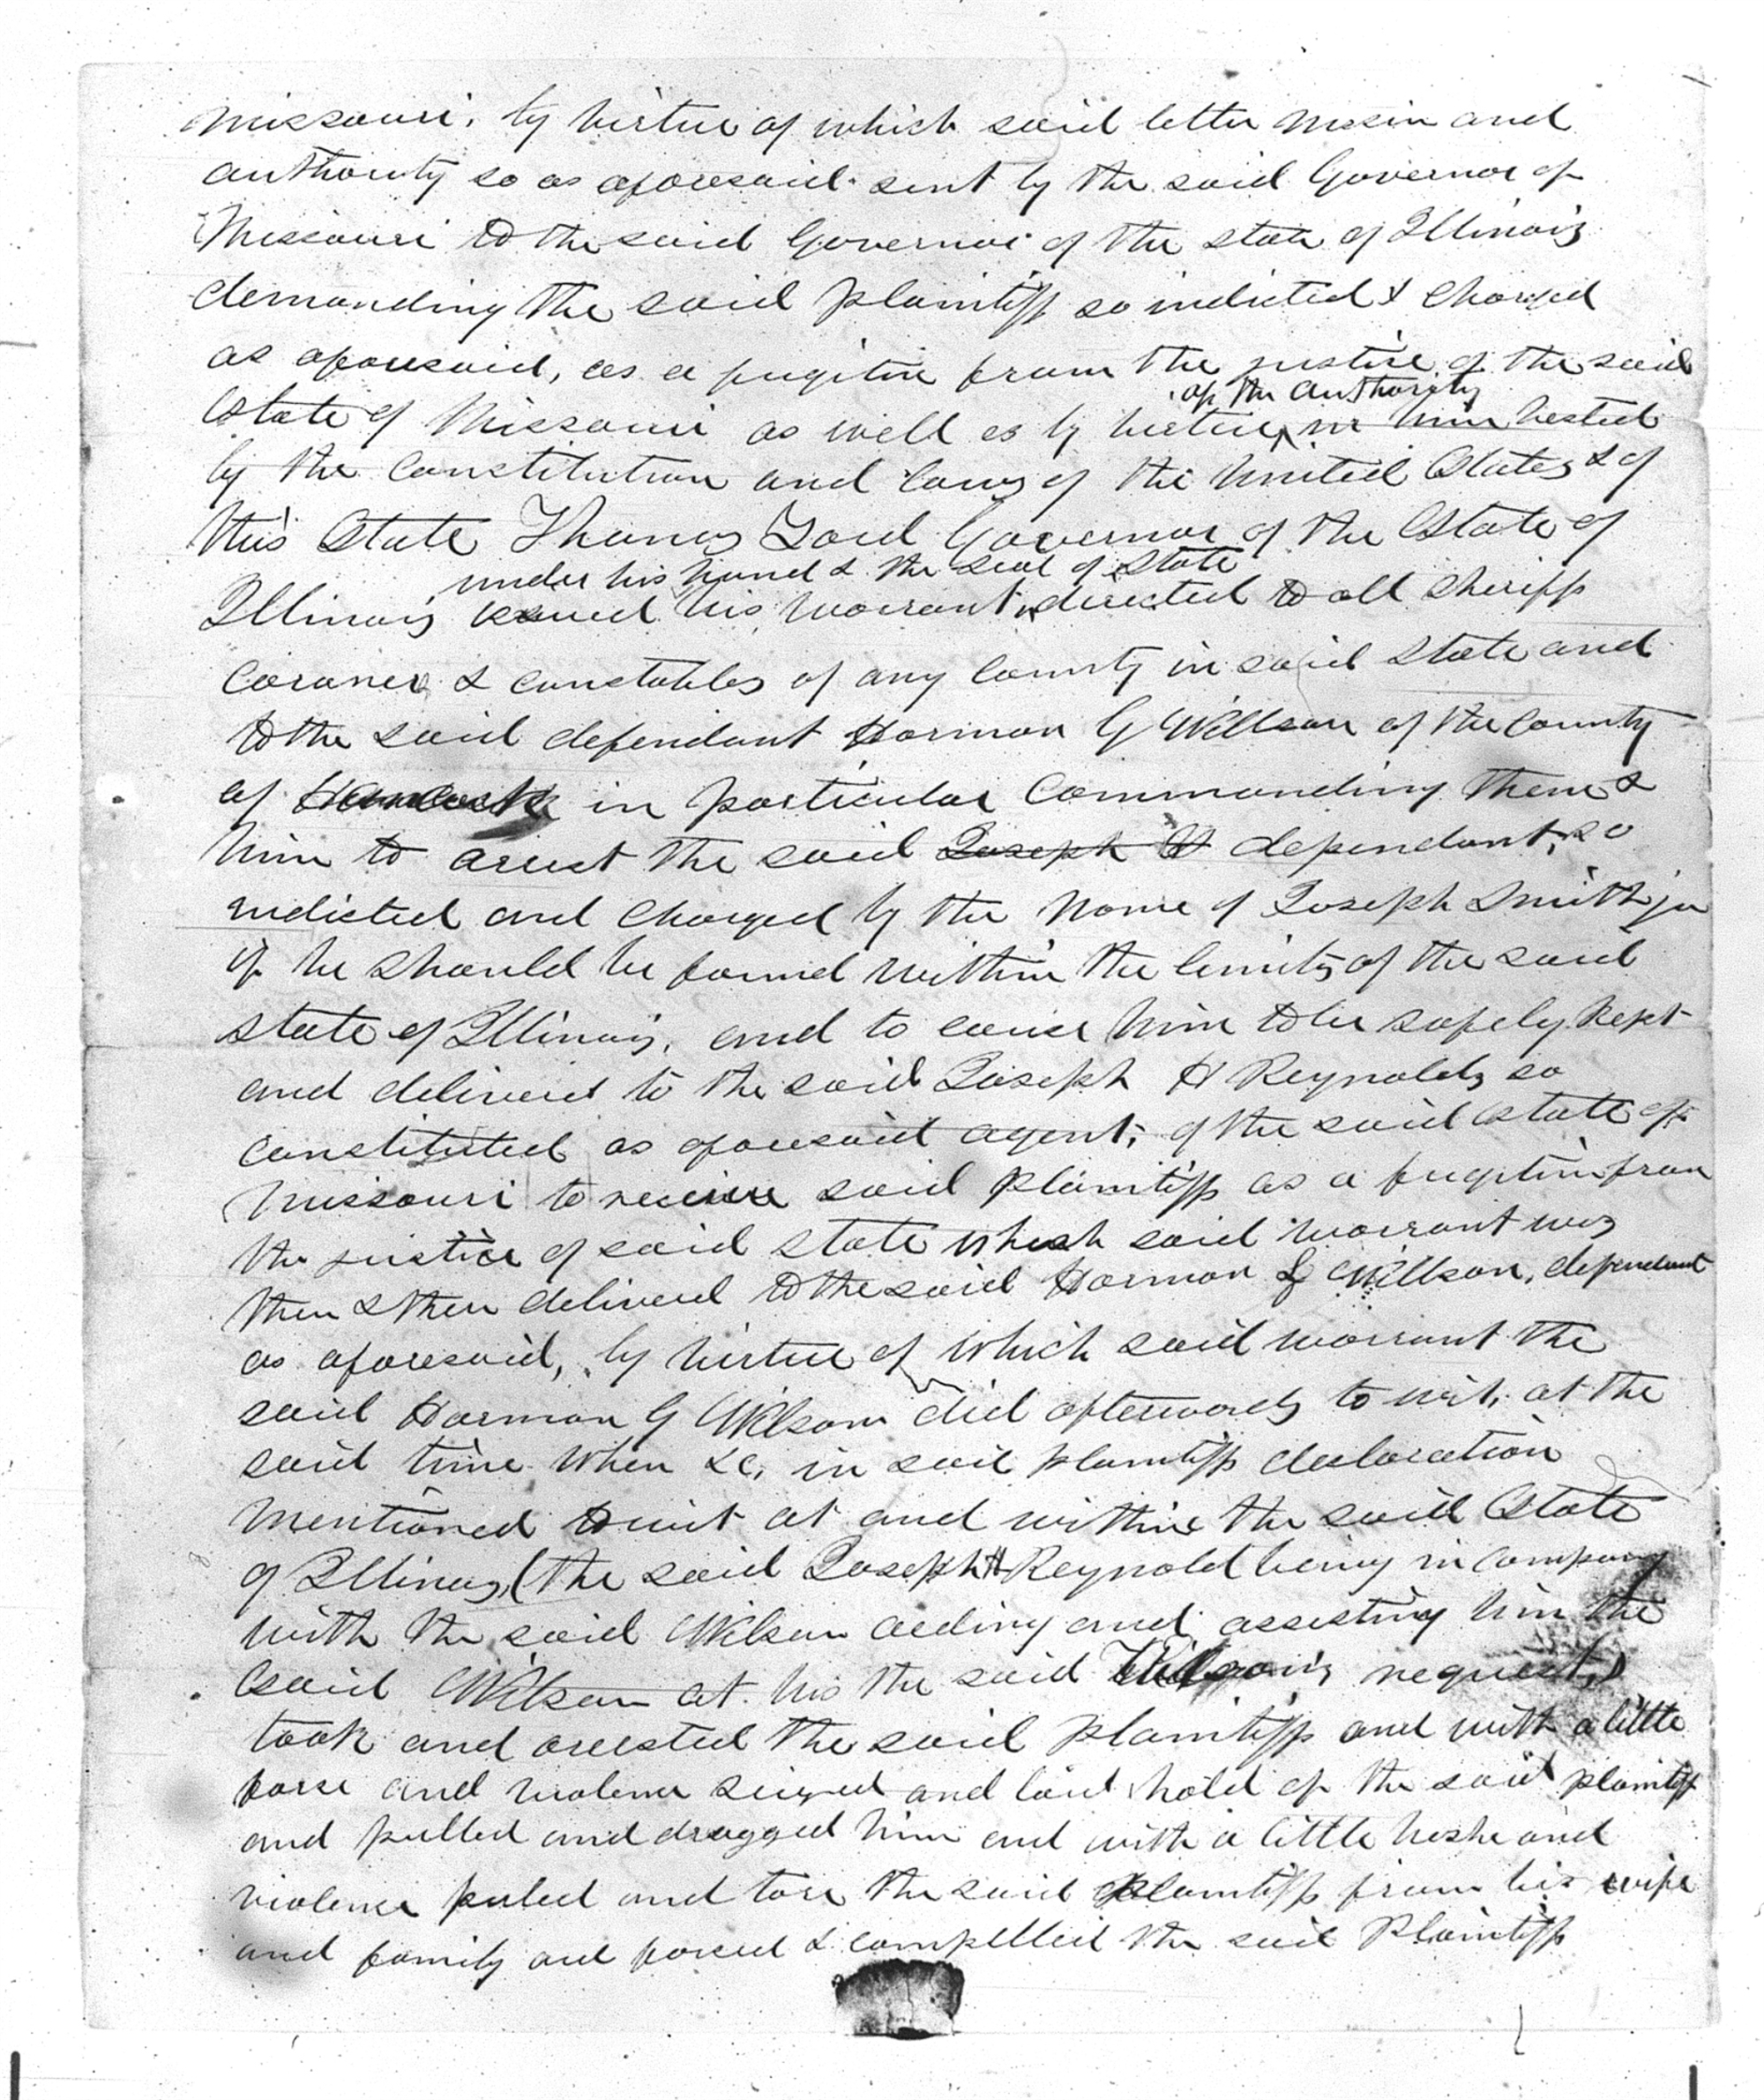 Missouri, by virtue of which said letter missin and
authority so as aforesaid sent by the said Governor of
Missouri to the said Governor of the state of Illinois
demanding the said plaintiff so indicted & charged
as aforesaid, as a fugitive from the justice of the said
of the authority
State of Missouri as well as by virtue in him vested
by the constitution and laws of the United States & of
this State Thomas Ford Governor of the State of
under his hand & the seal of State
Illinois issued his warrant directed to all sheriffs
Coroners & constables of any county in said State and
to the said defendant Harmon G Willson of the County
of Hancock in particular commanding them &
him to arrest the said Joseph H defendant, so
indicted and charged by the name of Joseph Smith jr
if he should be found within the limits of the said
state of Illinois, and to cause him to be safely kept
and delivered to the said Joseph H Reynolds so
constituted as aforesaid agent, of the said state of
Missouri to receive said plaintiff as a fugitive from
the justice of said state which said warrant was
then & there delivered to the said Harmon G Willson, defendant
as aforesaid, by virtue of which said warrant the
said Harman G Wilson did afterwards to wit, at the
said time when &c, in said plaintiffs declaration
mentioned to wit at and within the said State
of Illinois, (the said Joseph H Reynold being in company
with the said Wilson aeding and assisting him the
said Wilson at his the said Wilson's request,)
took and arrested the said plaintiff and with a little
force and violence seized and laid hold of the said plaintiff
and pulled and dragged him and with a little and
violence puled and tore the said plaintiff from his wife
and family and forced & compelled the said Plaintiff